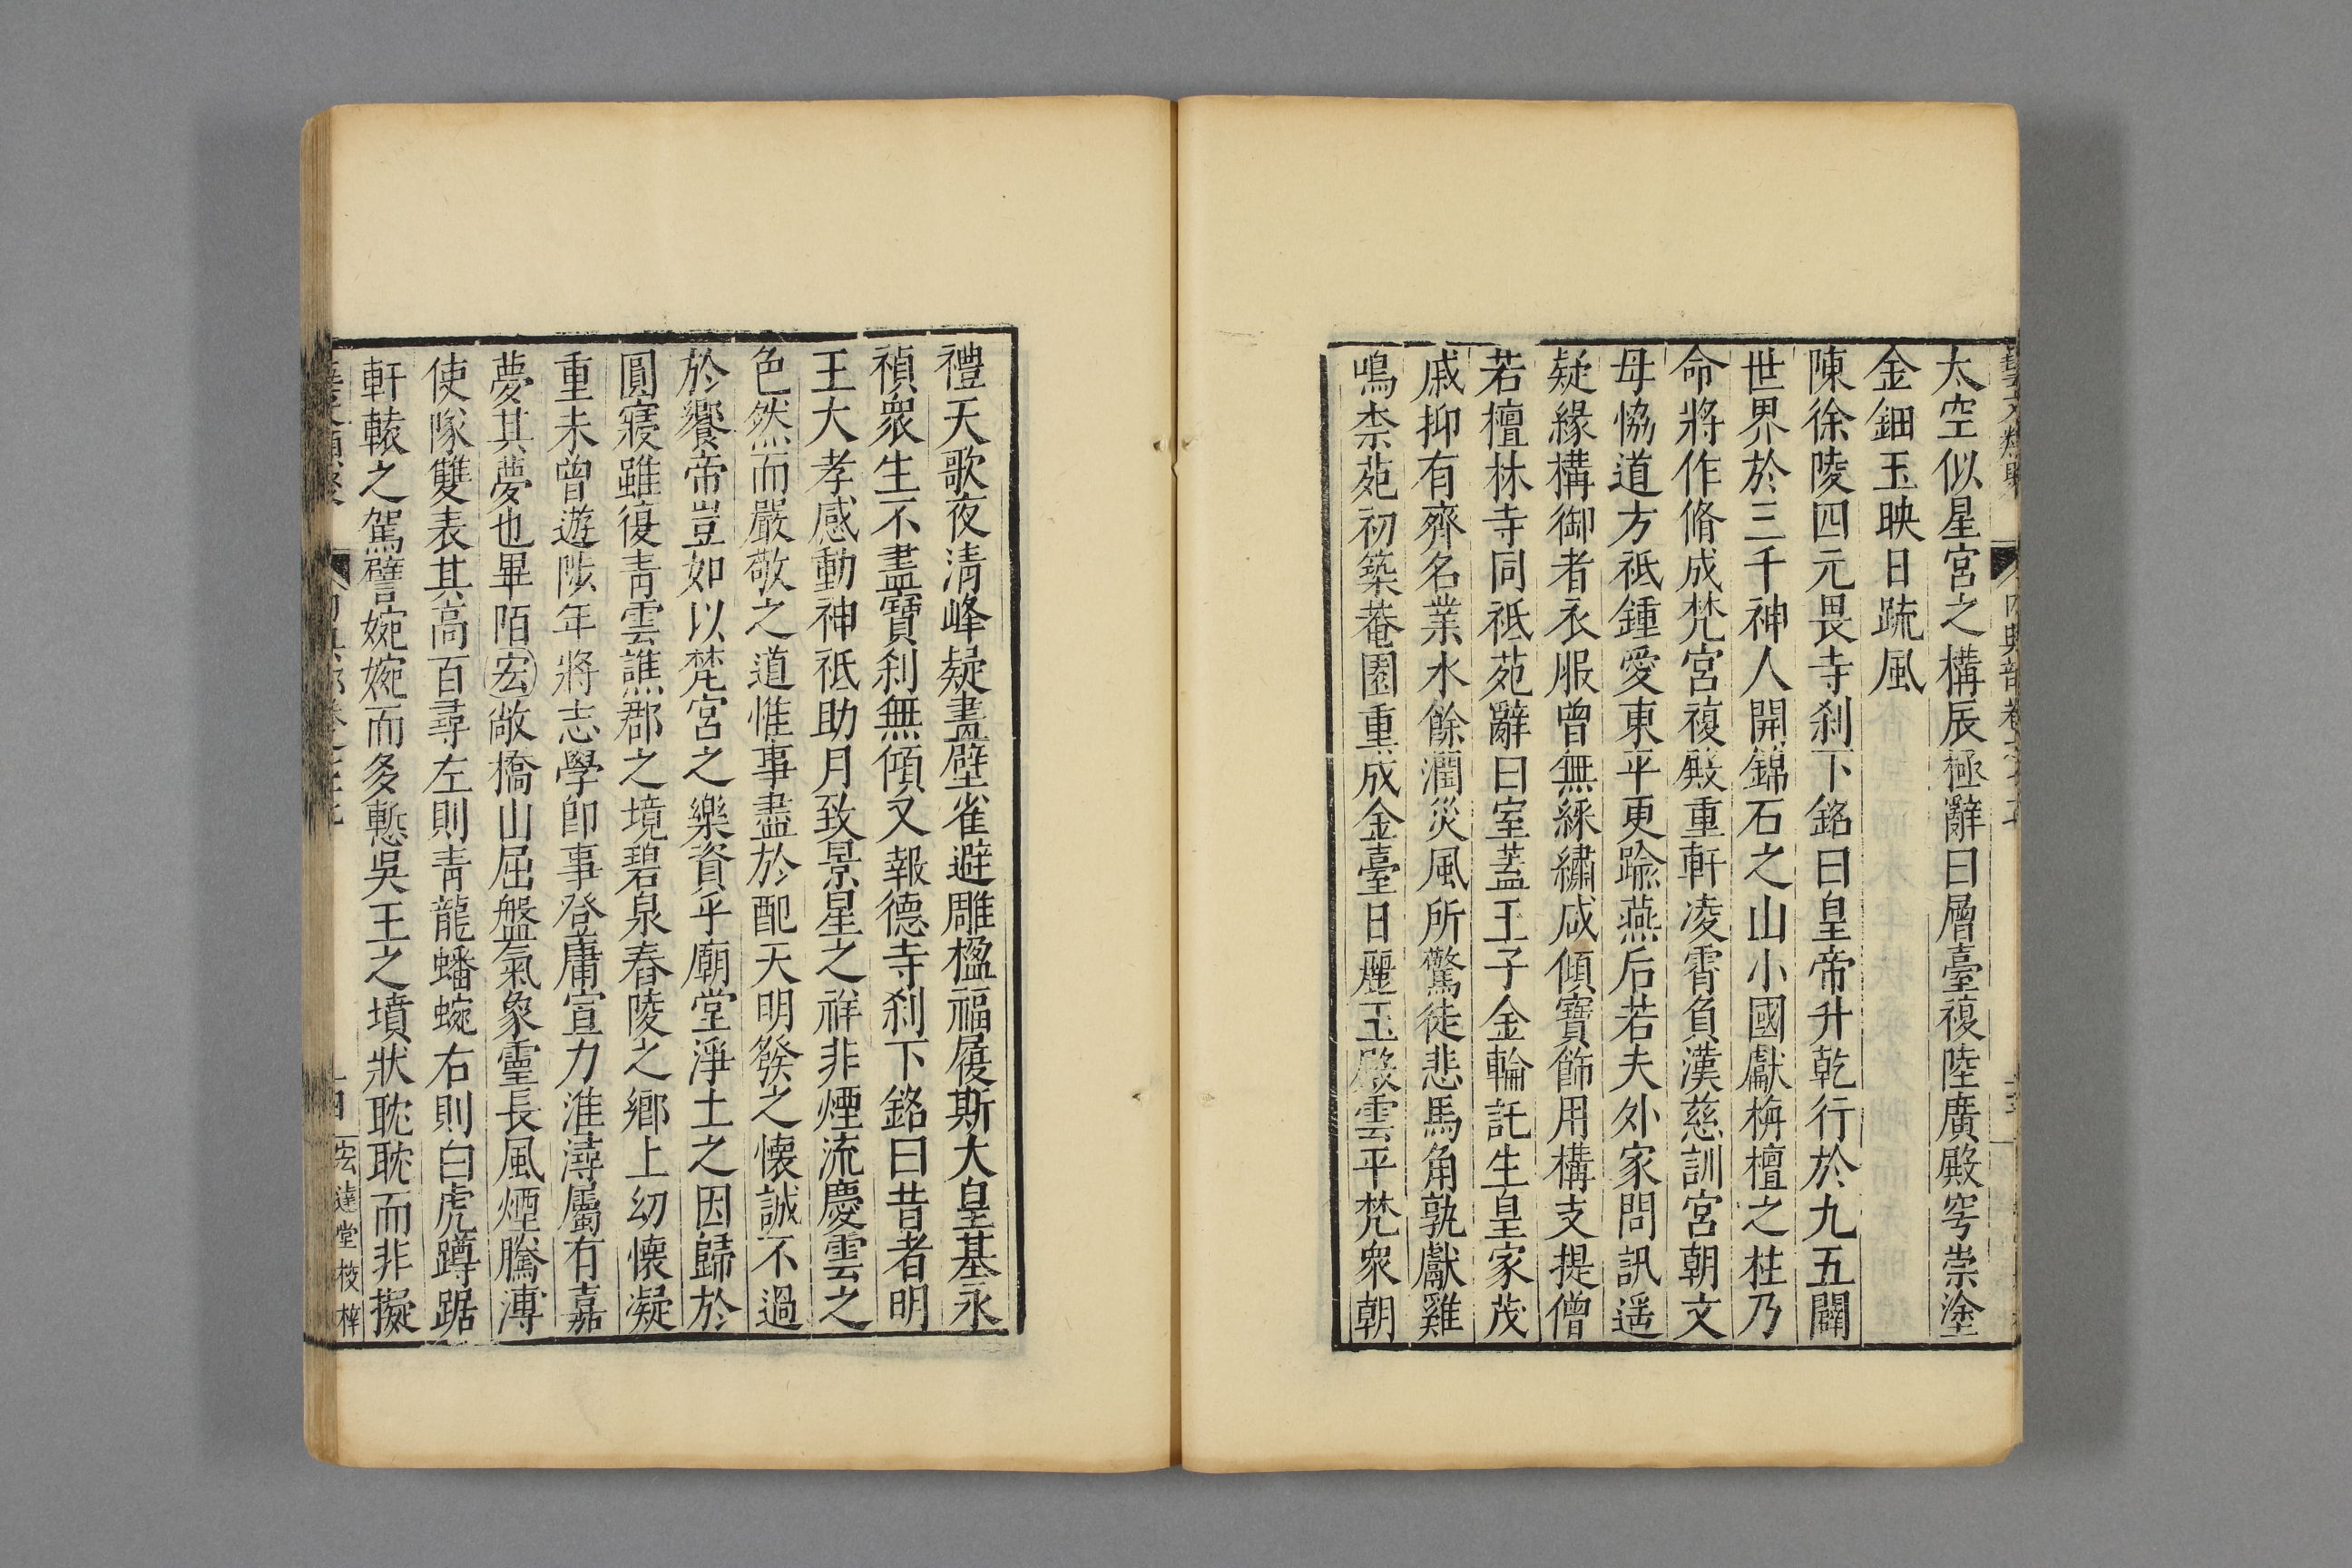 太空似星宮之構辰極辭曰層臺複陸廣殿穹崇塗
金鈿玉映日疏風
陳徐陵四元畏寺刹下銘曰皇帝升乾行於九五闢
世界於三千神人開錦石之山小國獻栴檀之柱乃
命將作脩成梵宮複殿重軒凌霄負漢慈訓宮朝文
母恊道方祇鍾愛東平更踰燕后若夫外家問訊遥
疑緣構御者衣服曾無綵繡咸傾寶飾用構支提僧
若檀林寺同祇苑辭曰室蓋王子金輪託生皇家茂
戚抑有齊名業水餘潤災風所驚徒悲馬角孰獻雞
鳴柰苑初築菴園重成金臺日麗玉殿雲平梵衆朝
禮天歌夜清峰疑畫壁雀避雕楹福履斯大皇基永
禎衆生不盡寶刹無傾又報德寺刹下銘曰昔者明
王大孝感動神祇助月致景星之祥非煙流慶雲之
色然而嚴敬之道惟事盡於配天明發之懷誠不過
於饗帝豈如以梵宮之樂資乎廟堂淨土之因歸於
圓寢雖復青雲譙郡之境碧泉舂陵之鄉上幼懷凝
重未曾遊陟年將志學卽事登庸宣力淮濤屬有嘉
夢其夢也畢陌宏敞橋山屈盤氣象靈長風煙騰溥
使隊雙表其高百尋左則青龍蟠蜿右則白虎蹲踞
軒轅之駕譬婉婉而多慙吳王之墳狀耽耽而非擬
宏達堂校梓